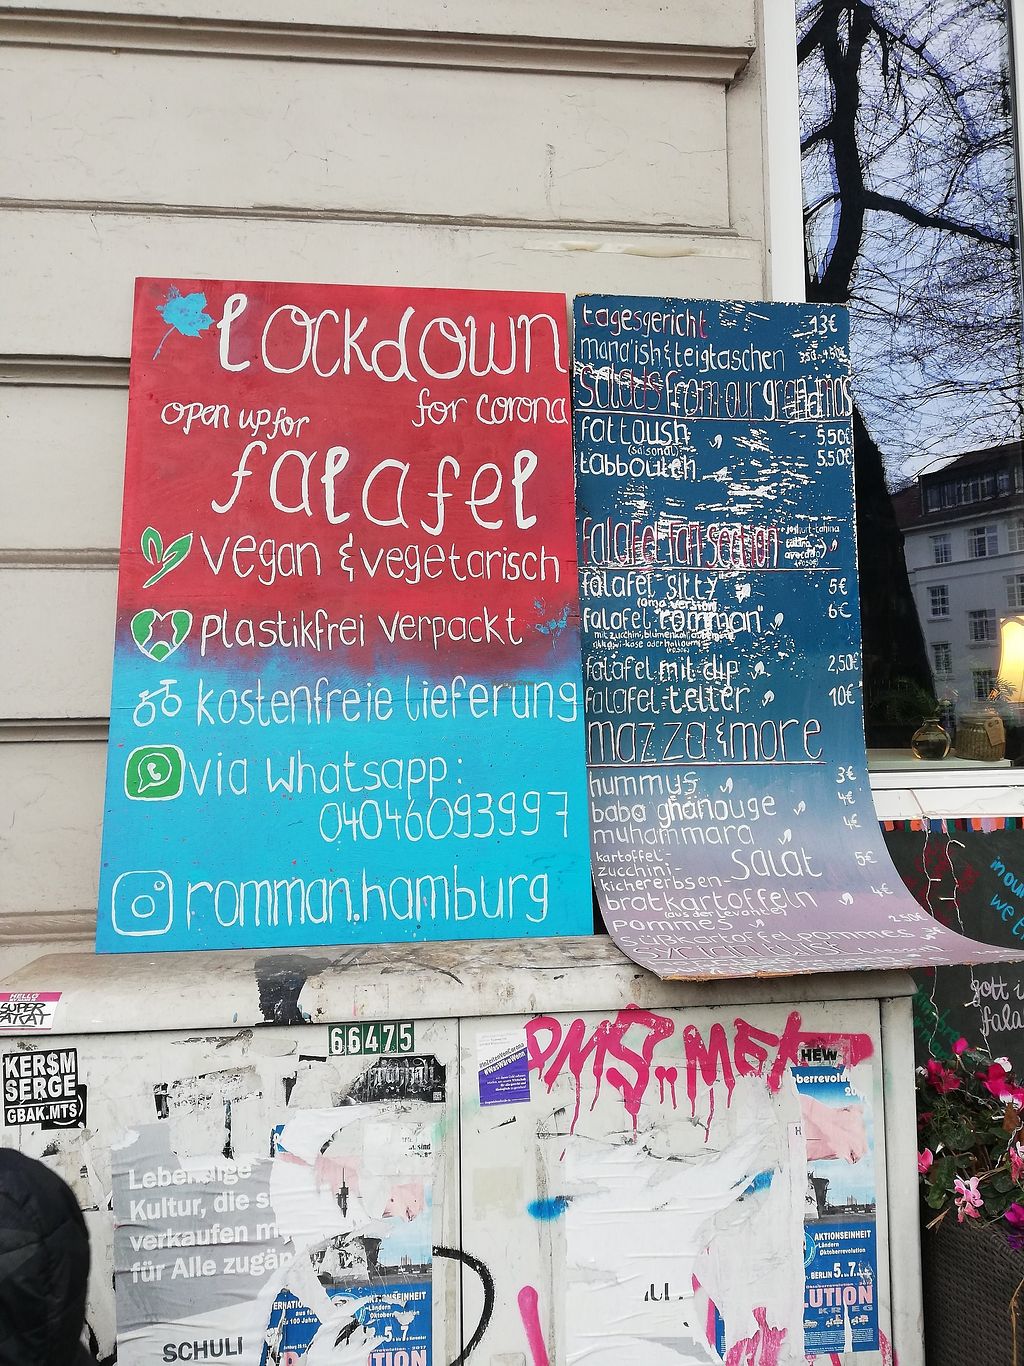 lockdown
for corona
open up for
falafel
vegan & vegetarisch
plastikfrei verpackt
kostenfreie lieferung
via Whatsapp:
04046093997
romman.hamburg
tagesgericht 13€
mana'ish & teigtaschen
salads from our grandmas
fattoush 5,50€
(saisonal)
tabbouleh 5,50€
falafel fan section
falafel sitty 5€
(oma version)
falafel "romman" 6€
falafel mit dip 2,50€
falafel teller 10€
mazza & more
hummus 3€
baba ghanouge 4€
muhammara 4€
kartoffel-
zucchini-
kichererbsen- salat 5€
bratkartoffeln 4€
(aus der levante)
pommes 2,50€
süßkartoffel pommes 3€
HELLO
SUPER
KERSM
SERGE
GBAK.MTS
66475
#WasWäreWenn
HEW
Lebendige
Kultur, die s
verkaufen m
für Alle zugän
SCHULI
AKTIONSEINHEIT
Ländern
Oktoberrevolution
BERLIN 5.-7.
LUTION
KRIEG
AKTIONSEINHEIT
Ländern
Oktoberrevolution
100 Jahre
5.-7.
UTION
gott i
fala